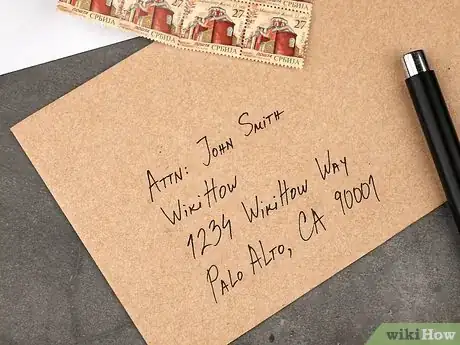 СРБИЈА СРБИЈА СРБИЈА
27 27 27
ATTN: JOHN SMITH
WIKIHOW
1234 WIKIHOW WAY
PALO ALTO, CA 90001
wikiHow